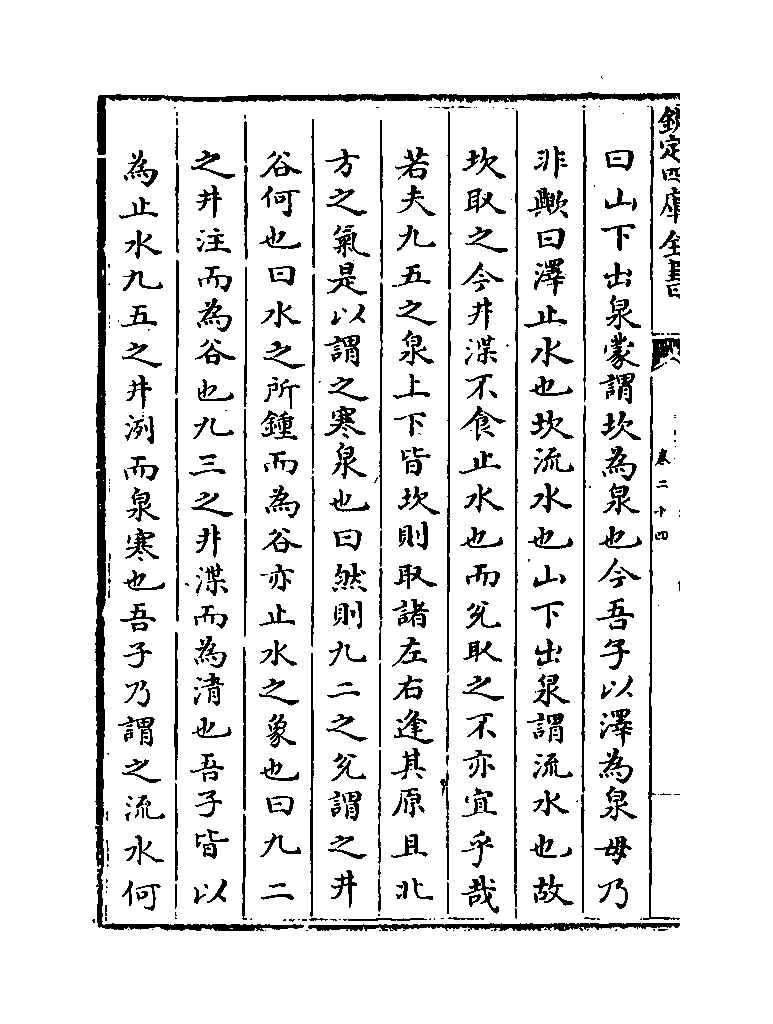 欽定四庫全書
卷二十四
曰山下出泉蒙謂坎為泉也今吾子以澤為泉毋乃
非歟曰澤止水也坎流水也山下出泉謂流水也故
坎取之今井渫不食止水也而兊取之不亦宜乎哉
若夫九五之泉上下皆坎則取諸左右逢其原且北
方之氣是以謂之寒泉也曰然則九二之兊謂之井
谷何也曰水之所鍾而為谷亦止水之象也曰九二
之井注而為谷也九三之井渫而為清也吾子皆以
為止水九五之井洌而泉寒也吾子乃謂之流水何